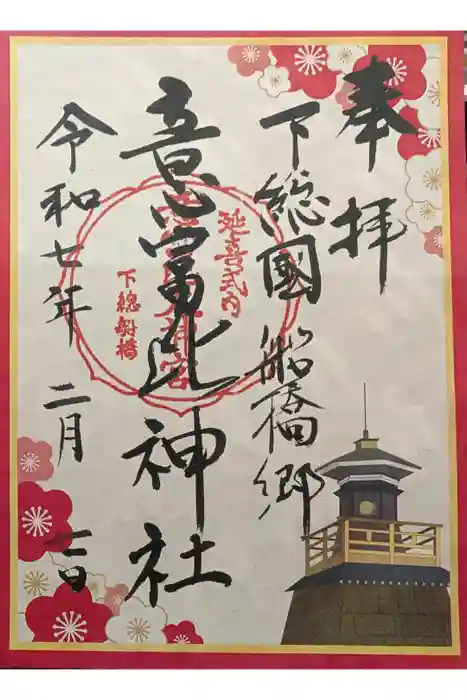 奉拝
下総國船橋郷
意富比神社
令和七年二月 吉日
延喜式内
意富比神宮
下總船橋